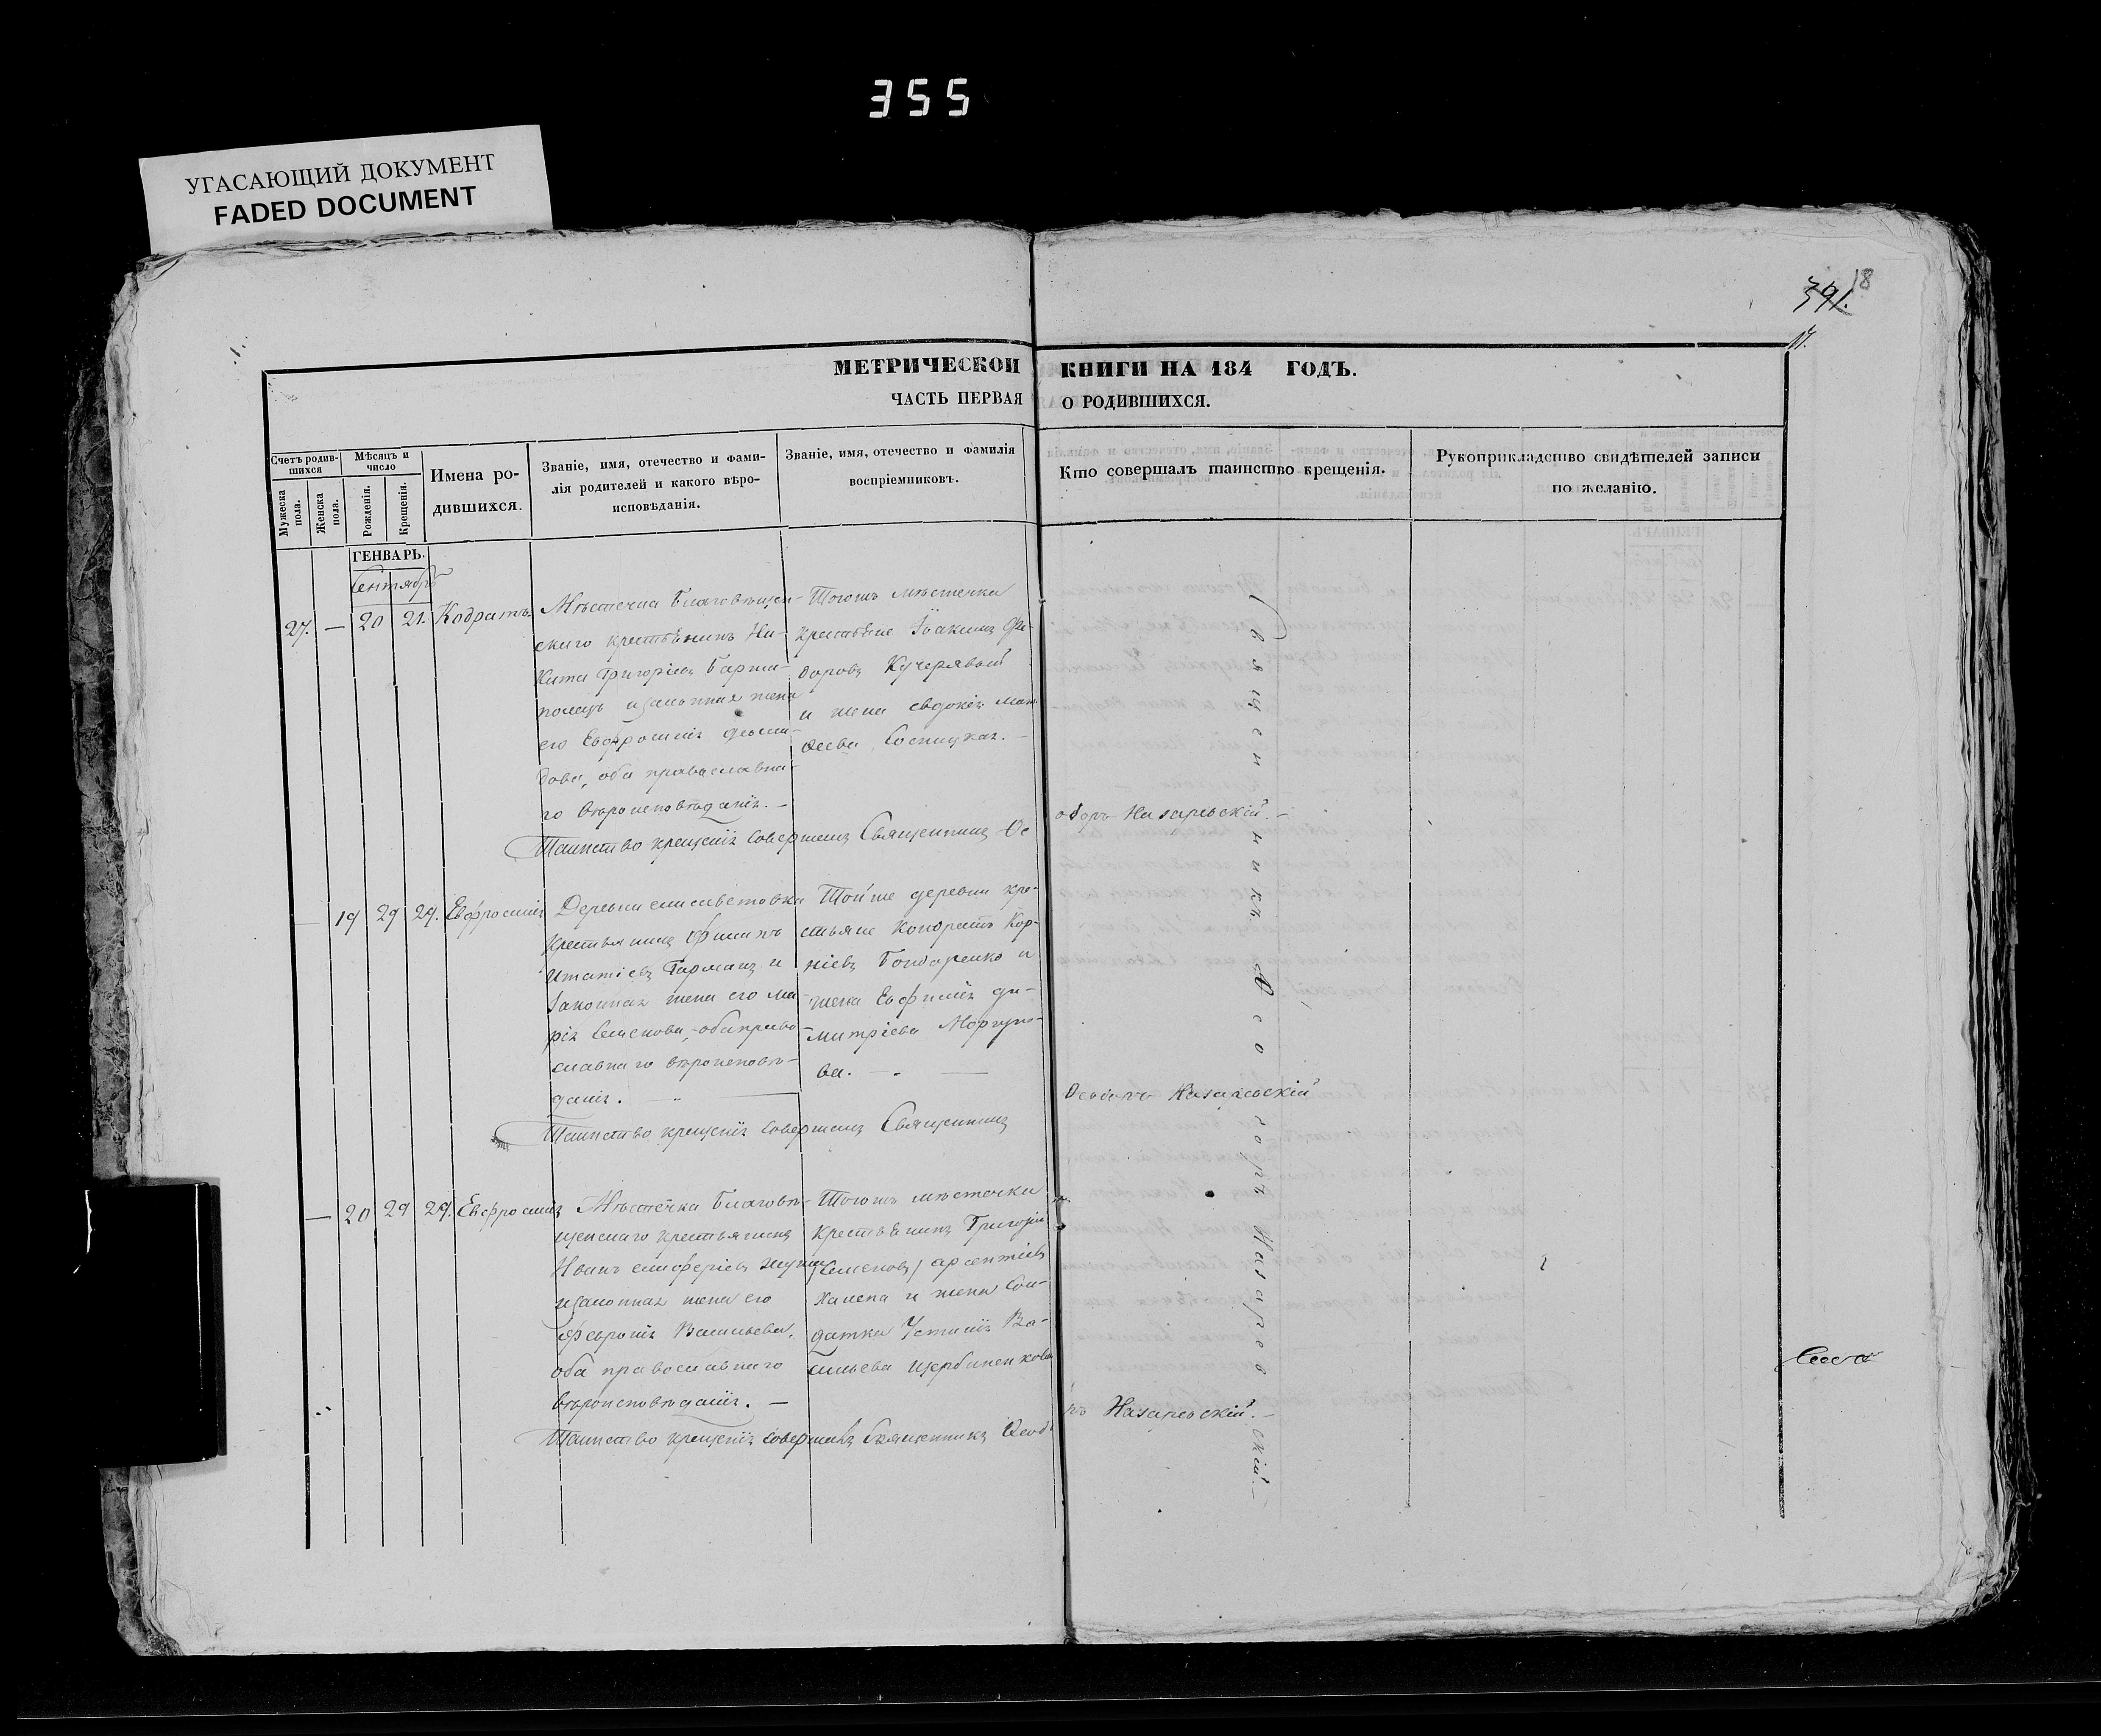 355
УГАСАЮЩИЙ ДОКУМЕНТ
FADED DOCUMENT
18
391.
МЕТРИЧЕСКОЙ КНИГИ НА 184 ГОДЪ.
ЧАСТЬ ПЕРВАЯ О РОДИВШИХСЯ.
Счетъ родив-
шихся
Мужеска пола.
Женска пола.
Мѣсяцъ и
число
Рожденія.
Крещенія.
Имена ро-
дившихся.
Званіе, имя, отечество и фами-
лія родителей и какого вѣро-
исповѣданія.
Званіе, имя, отечество и фамилія
воспріемниковъ.
Кто совершалъ таинство крещенія.
Рукоприкладство свидѣтелей записи
по желанію.
ГЕНВАРЬ.
Сентябрь
27. — 20 21. Кодратъ.
Мѣстечка Благовѣщен-
скаго крестьянинъ Ни-
кита Григоріевъ
изаконная жена
его Евфросинія
дова, оба православна-
го вѣроисповѣданія. —
Тогожъ мѣстечка
крестьяне Іоакимъ Фе-
доровъ Кучерявый
и жена Евдокія Мат-
ѳеева
Таинство крещенія совершилъ Священникъ Ѳе
одоръ Назаревскій. —
— 19 29 29. Евфросинія
Деревни елисаветовки
Крестьянинъ Филипъ
Игнатіевъ Гарманъ и
законная жена его Ма-
рія Семенова, оба право
славнаго вѣроисповѣ-
данія. —
Той же деревни кре-
стьяне Кондратъ Кор-
ніевъ Бондаренко и
жена Евфимія Ди-
митріева Моргуно-
ва. —
Таинство крещенія совершилъ Священникъ
Ѳеодоръ Назаревскій
— 20 29 29. Евфросинія
Мѣстечка Благовѣ-
щенскаго крестьянинъ
Иванъ елиферіевъ
изаконная жена его
Февронія Васильева,
оба православнаго
вѣроисповѣданія. —
Тогожъ мѣстечка
Крестьянинъ Григорій
Семеновъ арсентіевъ
Халепа и жена Сол-
датка Устинія Ва-
сильева Щербиненкова
Таинство крещенія совершилъ Священникъ Ѳеодо
ръ Назаревскій. —
Священникъ Ѳеодоръ Назаревскій. —